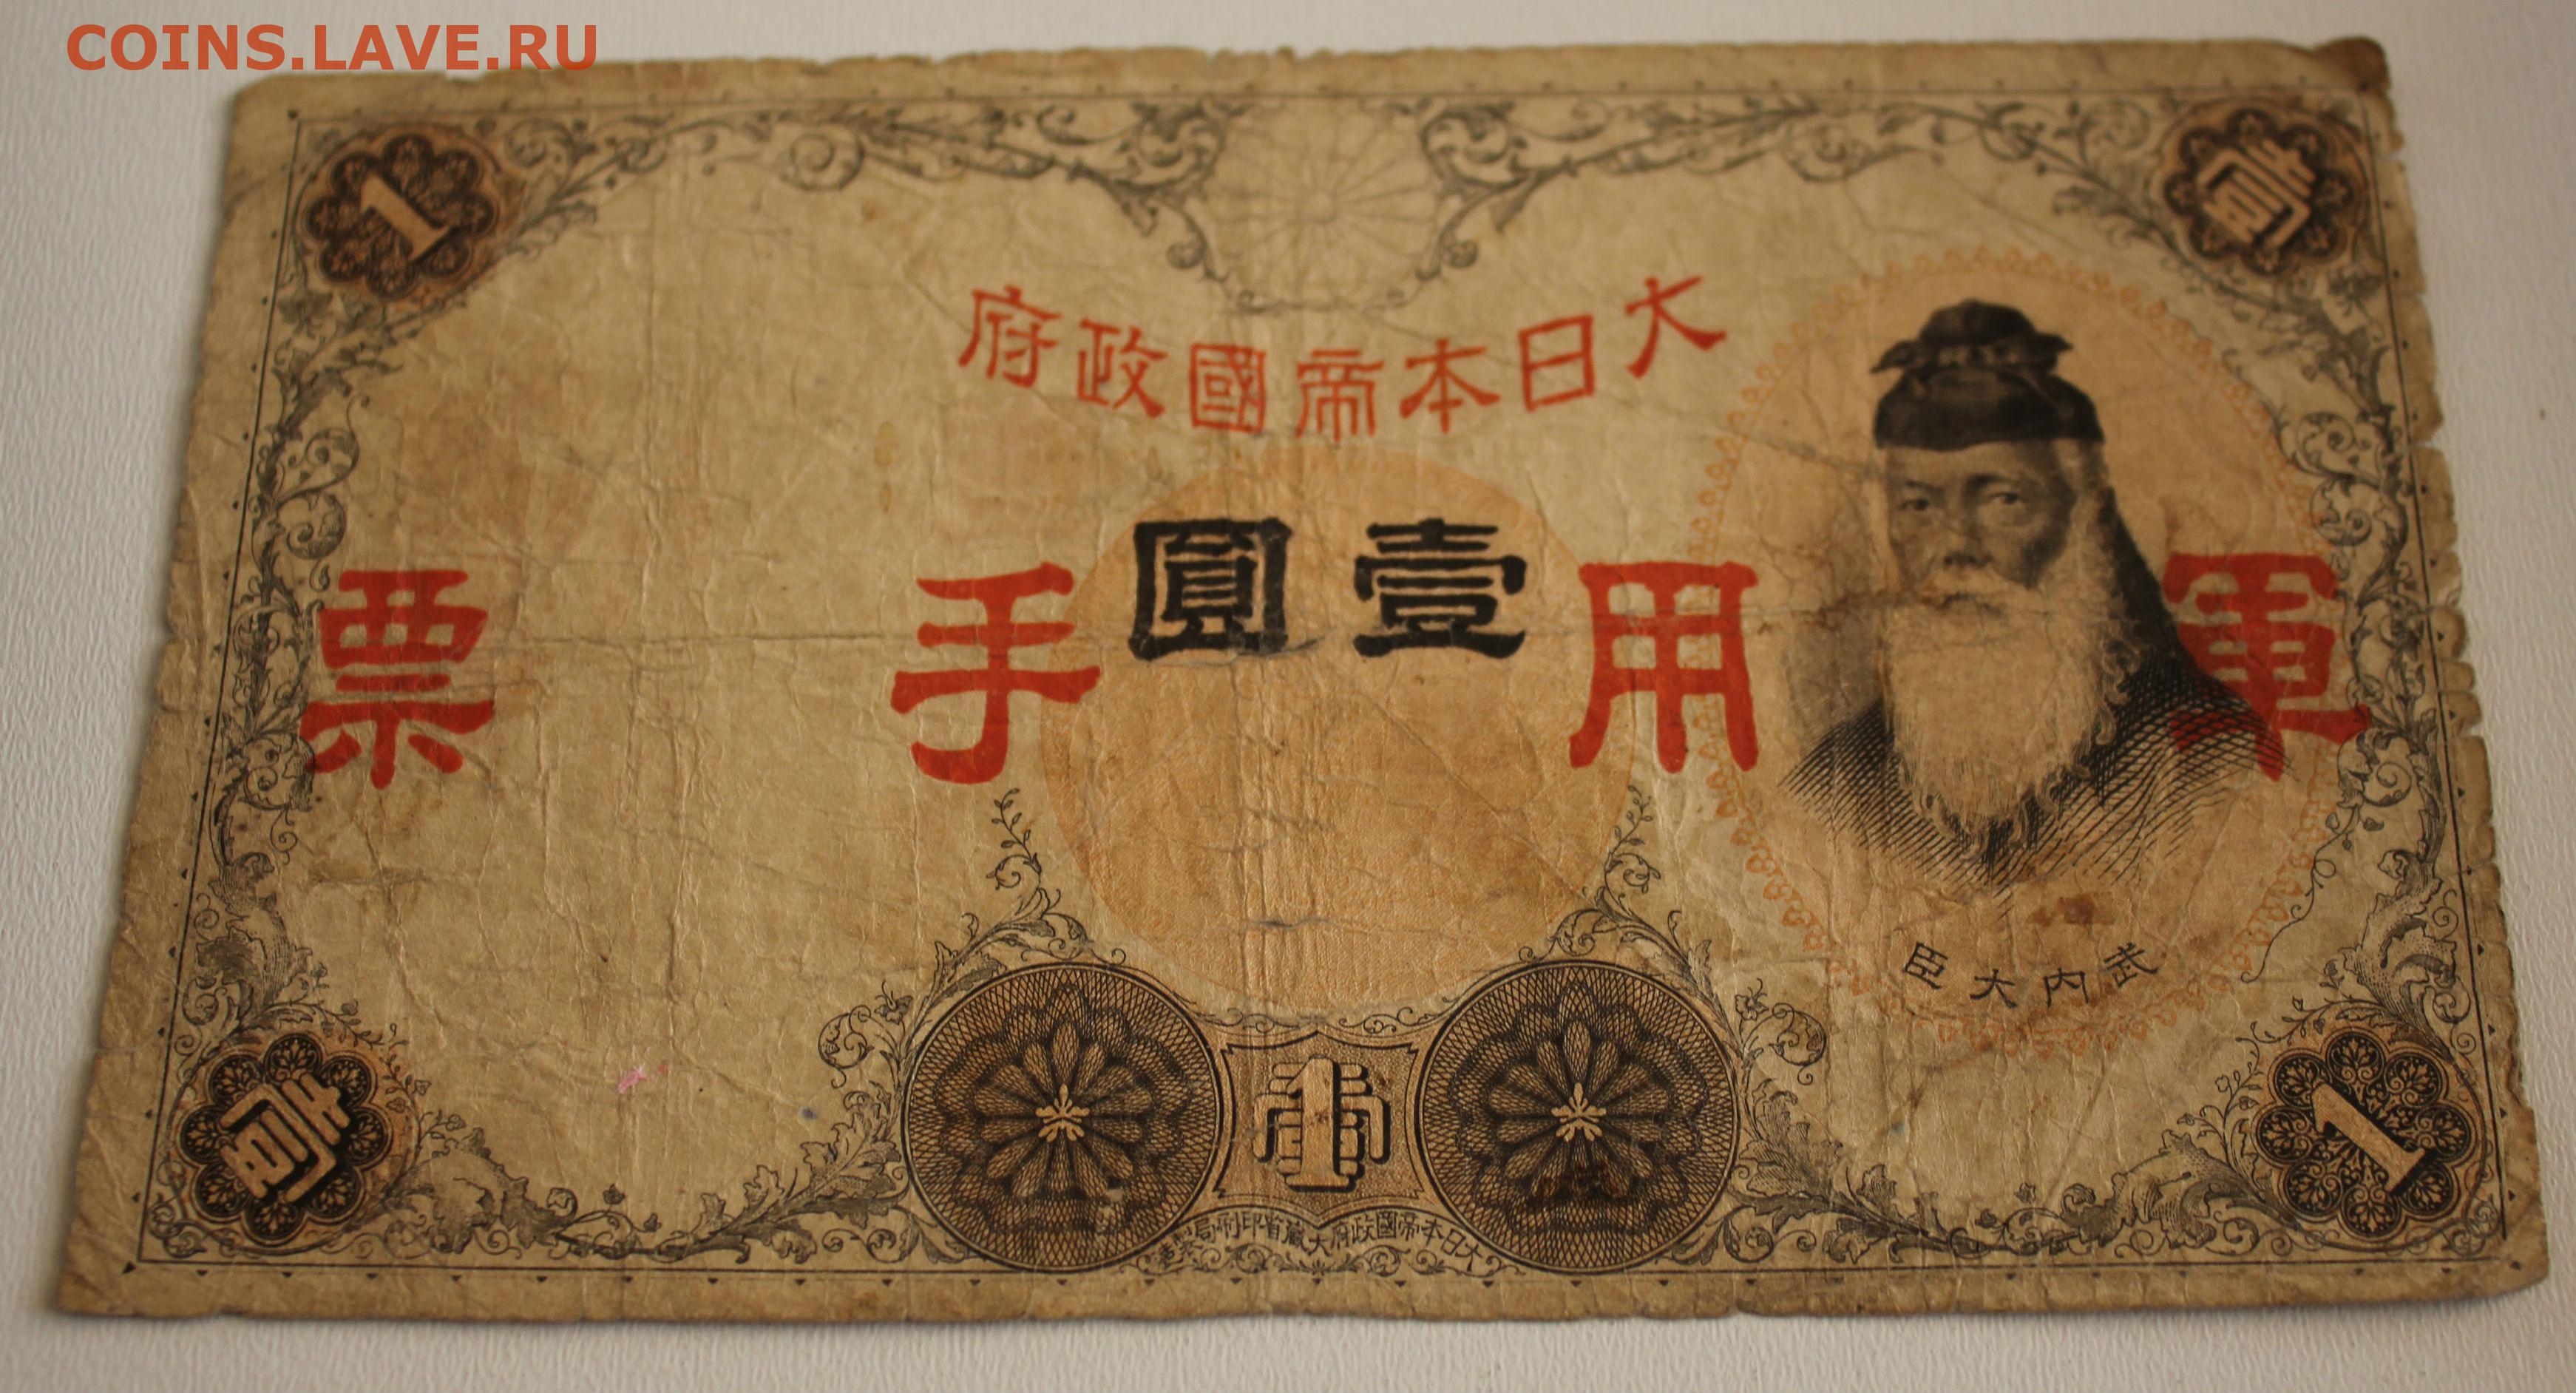 COINS.LAVE.RU
1
壹
大日本帝國政府
壹圓
軍用手票
武内大臣
壹
1
1
大日本帝國政府大藏省印刷局製造